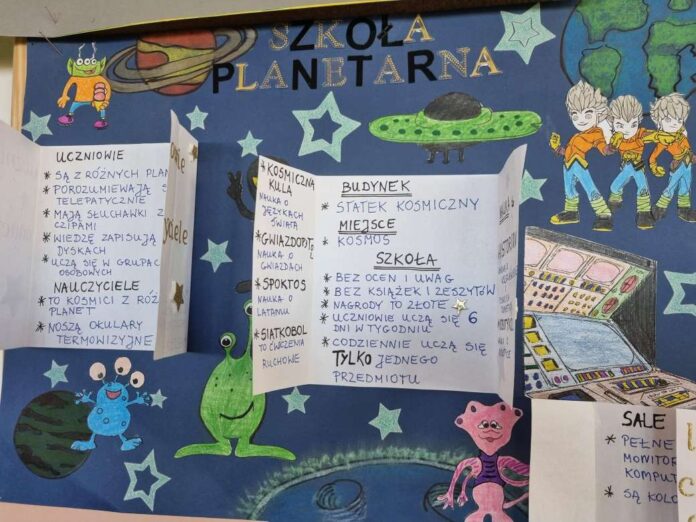 SZKOŁA
PLANETARNA
UCZNIOWIE
* SĄ Z RÓŻNYCH
* POROZUMIEWAJĄ
TELEPATYCZNIE
* MAJĄ SŁUCHAWKI Z
CZIPAMI
* WIEDZĘ ZAPISUJĄ
DYSKACH
* UCZĄ SIĘ W
OSOBOWYCH
NAUCZYCIELE
* TO KOSMICI Z
PLANET
* NOSZĄ OKULARY
TERMOWIZYJNE
* KOSMICZNA
KULA
NAUKA O
JĘZYKACH
ŚWIATA
NAUKA O
GWIAZDACH
* SPOKTOS
NAUKA O
LATANIU
* SIATKOBOL
TO ĆWICZENIA
RUCHOWE
BUDYNEK
* STATEK KOSMICZNY
MIEJSCE
* KOSMOS
SZKOŁA
* BEZ OCEN I UWAG
* BEZ KSIĄŻEK I ZESZYTÓW
* NAGRODY TO ZŁOTE
* UCZNIOWIE UCZĄ SIĘ 6
DNI W TYGODNIU
* CODZIENNIE UCZĄ SIĘ
TYLKO JEDNEGO
PRZEDMIOTU
SALE
* PEŁNE
* SĄ